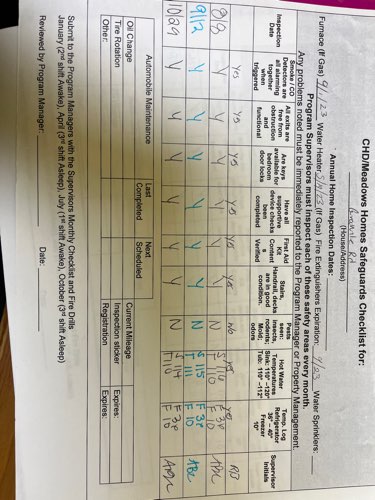 CHD/Meadows Homes' Safeguards Checklist for:
(House/Address)
Annual Home Inspection Dates:
Furnace (If Gas) 9/1/23 Water Heater (If Gas) Fire Extinguishers Expiration: 9/23 Water Sprinklers:
Program Supervisors must inspect each of these safety areas every month
Any problems noted must be immediately reported to the Program Manager or Property Management.
Inspection Date
Smoke / CO Detectors are all alarming together when triggered
All exits are free from obstruction and functional
Are keys available for bedroom door locks
Have all supportive device checks been completed
First Aid Kit Contents Verified
Stairs, Handrail, decks are in good condition.
Pests seen: Insects, rodents; Mold; odors
Hot Water Temperatures Sink: 110° -120° Tub: 110° -112°
Temp. Log Refrigerator 36° - 40° Freezer 10°
Supervisor Initials
8/8 Yes Yes Yes Yes Yes Yes No
9/12 Y Y Y Y Y Y N S 115 T 111 F 10
10/29 Y Y Y Y Y Y N S 114 T 110 F 10
Automobile Maintenance
Last Completed
Next Scheduled
Current Mileage
Oil Change
Tire Rotation
Inspection sticker Expires:
Other:
Registration Expires:
Submit to the Program Managers with the Supervisors Monthly Checklist and Fire Drills
January (2nd shift Awake), April (3rd shift Asleep), July (1st shift Awake), October (3rd shift Asleep)
Reviewed by Program Manager: Date: